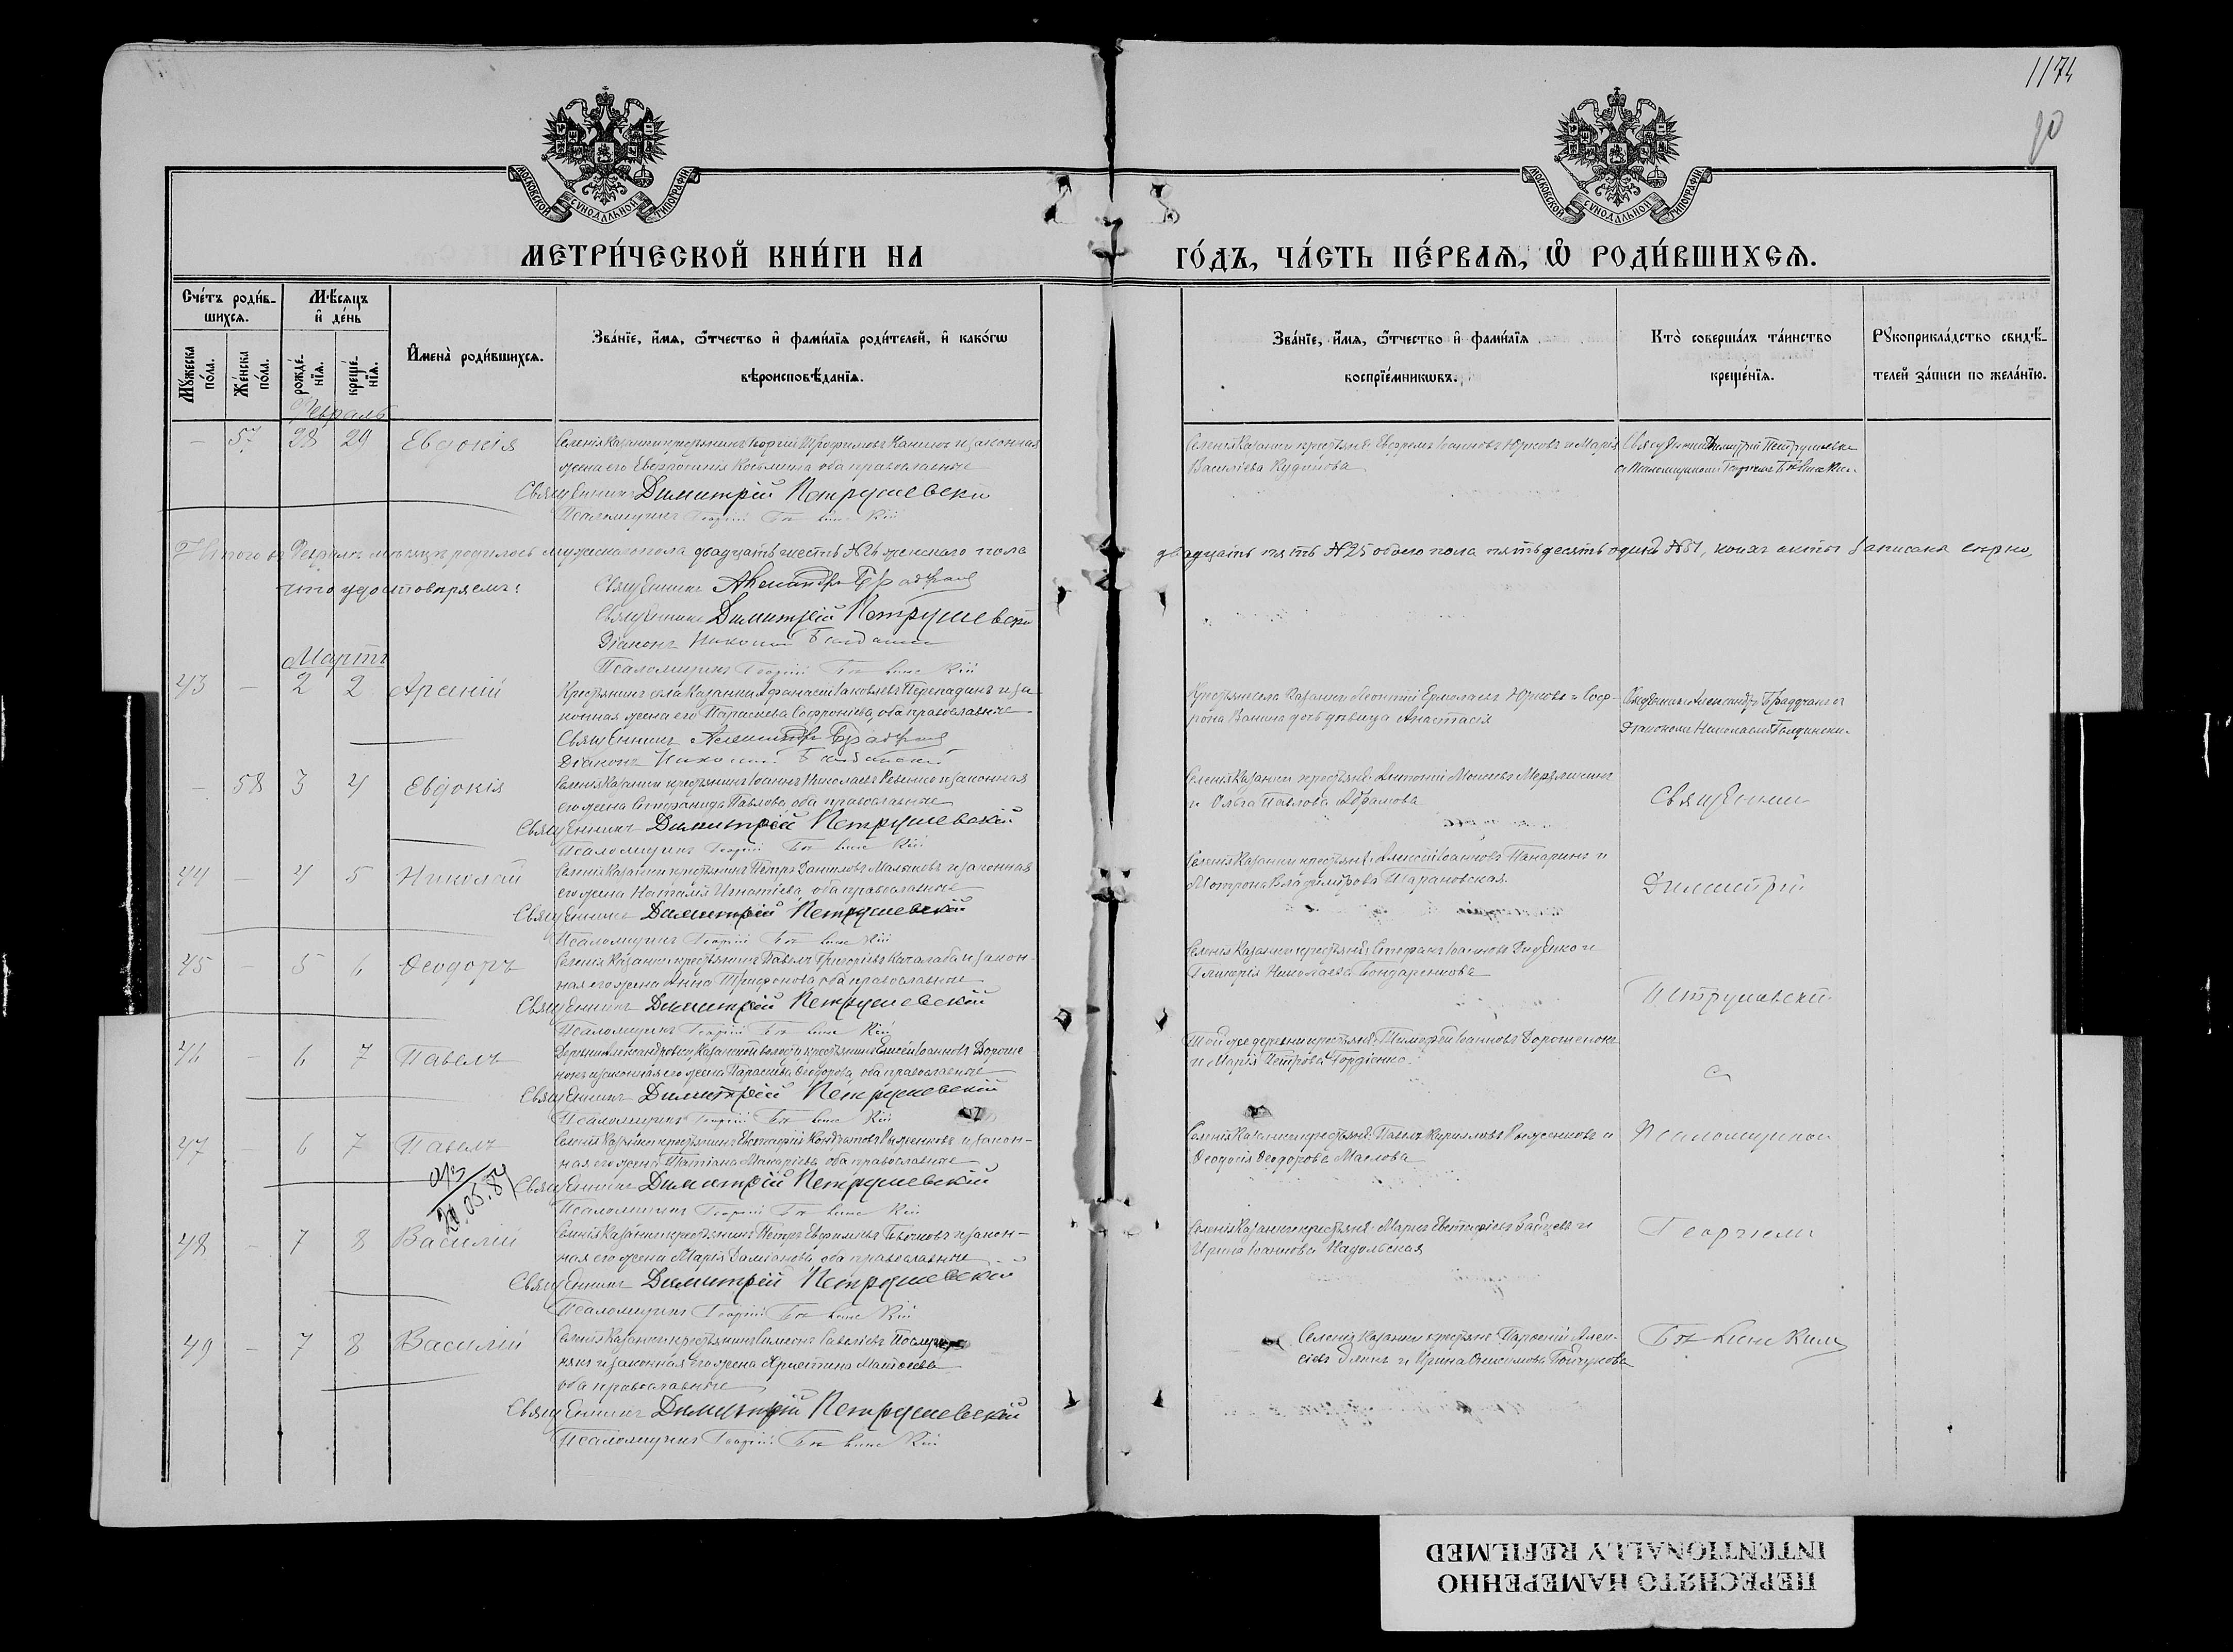 1174
90
МОСКОВСКОЙ СѴНОДАЛЬНОЙ ТИПОГРАФІИ
МОСКОВСКОЙ СѴНОДАЛЬНОЙ ТИПОГРАФІИ
МЕТРИ́ЧЕСКОЙ КНИ́ГИ НА ГО́ДЪ, ЧА́СТЬ ПЕ́РВАЯ, Ѡ РОДИ́ВШИХСЯ.
Сче́тъ роди́в-
шихся.
Мѣ́сяцъ
и де́нь
Мꙋ́жеска по́ла.
Же́нска по́ла.
рожде́-нїя.
креще́-нїя.
Имена̀ роди́вшихся.
Зва́нїе, и́мя, ѻ́тчество и фами́лїя роди́телей, и како́гѡ
вѣроисповѣ́данїя.
Зва́нїе, и́мя, ѻ́тчество и фами́лїя
воспрїе́мникѡвъ.
Кто̀ соверша́лъ та́инство
креще́нїя.
Рꙋкоприкла́дство свидѣ́-
телей за́писи по жела́нїю.
Февраль
— 57 28 29 Евдокія
Селенія Казанки крестьянинъ Георгій Трофимовъ и законная
жена его Евфросинія Козьмина оба православные
Священникъ Димитрій Петрушевскій
Псаломщикъ Георгій
Селенія Казанки крестьяне: Ефремъ Іоанновъ Юрковъ и Марія
Васильева Кудинова
Священникъ Димитрій Петрушевскій
съ Псаломщикомъ Георгіемъ
Итого въ Февралѣ мѣсяцѣ родилось мужскаго пола двадцать шесть №26 женскаго пола двадцать пять №25 обоего пола пятьдесятъ одинъ №51, коихъ акты записаны вѣрно,
что удостовѣряемъ:
Священникъ Александръ
Священникъ Димитрій Петрушевскій
Діаконъ Николай
Псаломщикъ Георгій
Мартъ
43 — 2 2 Арсеній
Крестьянинъ села Казанки Афанасій Іаковлевъ Перепадинъ и за-
конная жена его Параскева Софроніева, оба православные
Священникъ Александръ
Діаконъ Николай
Крестьян. села Казанки Леонтій Ермолаевъ Юрковъ и Соф-
рона Ванина дочь дѣвица Анастасія
Священникъ Александръ съ
Діакономъ Николаемъ
— 58 3 4 Евдокія
Селенія Казанки крестьянинъ Іоаннъ Николаевъ Ревенко и законная
его жена Стефанида Павлова, оба православные
Священникъ Димитрій Петрушевскій
Псаломщикъ Георгій
Селенія Казанки крестьяне: Антоній Моисеевъ
и Ольга Павлова Абрамова
Священникъ
44 — 4 5 Николай
Селенія Казанки крестьянинъ Петръ Даниловъ и законная
его жена Наталія Игнатіева, оба православные
Священникъ Димитрій Петрушевскій
Псаломщикъ Георгій
Селенія Казанки крестьяне: Алексій Іоанновъ Панаринъ и
Матрона Владимірова Шарановская.
Димитрій
45 — 5 6 Ѳеодоръ
Селенія Казанки крестьянинъ Павелъ Григорьевъ Качалаба и закон-
ная его жена Анна Трифонова, оба православные
Священникъ Димитрій Петрушевскій
Псаломщикъ Георгій
Селенія Казанки крестьяне: Стефанъ Іоанновъ Диденко и
Гликерія Николаева Бондаренкова
Петрушевскій
46 — 6 7 Павелъ
Деревни Александровки, Казанской волости крестьянинъ Елисей Іоанновъ Дороше-
нокъ и законная его жена Параскева Ѳеодорова, оба православные
Священникъ Димитрій Петрушевскій
Псаломщикъ Георгій
Той же деревни крестьяне: Тимоѳей Іоанновъ Дорошенокъ
и Марія Петрова Гордіенко
съ
47 — 6 7 Павелъ
Селенія Казанки крестьянинъ Евстафій Кондратовъ Рыженковъ и закон-
ная его жена Татіана Макаріева, оба православные
Священникъ Димитрій Петрушевскій
Псаломщикъ Георгій
Селенія Казанки крестьяне: Павелъ Кирилловъ Рыженковъ и
Ѳеодосія Ѳеодорова Маслова
Псаломщикомъ
48 — 7 8 Василій
Селенія Казанки крестьянинъ Петръ Евфиміевъ и закон-
ная его жена Марія Даміанова, оба православные
Священникъ Димитрій Петрушевскій
Псаломщикъ Георгій
Селенія Казанки крестьяне: Маркъ Евстафіевъ Зайцевъ и
Ирина Іоаннова Надольская
Георгіемъ
49 7 8 Василій
Селенія Казанки крестьянинъ Симеонъ Савельевъ
и законная его жена Христина Матѳеева
оба православные
Священникъ Димитрій Петрушевскій
Псаломщикъ Георгій
Селенія Казанки крестьяне: Парѳеній Алек-
сіевъ и Ирина Онисимова
ПЕРЕСНЯТО НАМЕРЕННО
INTENTIONALLY REFILMED